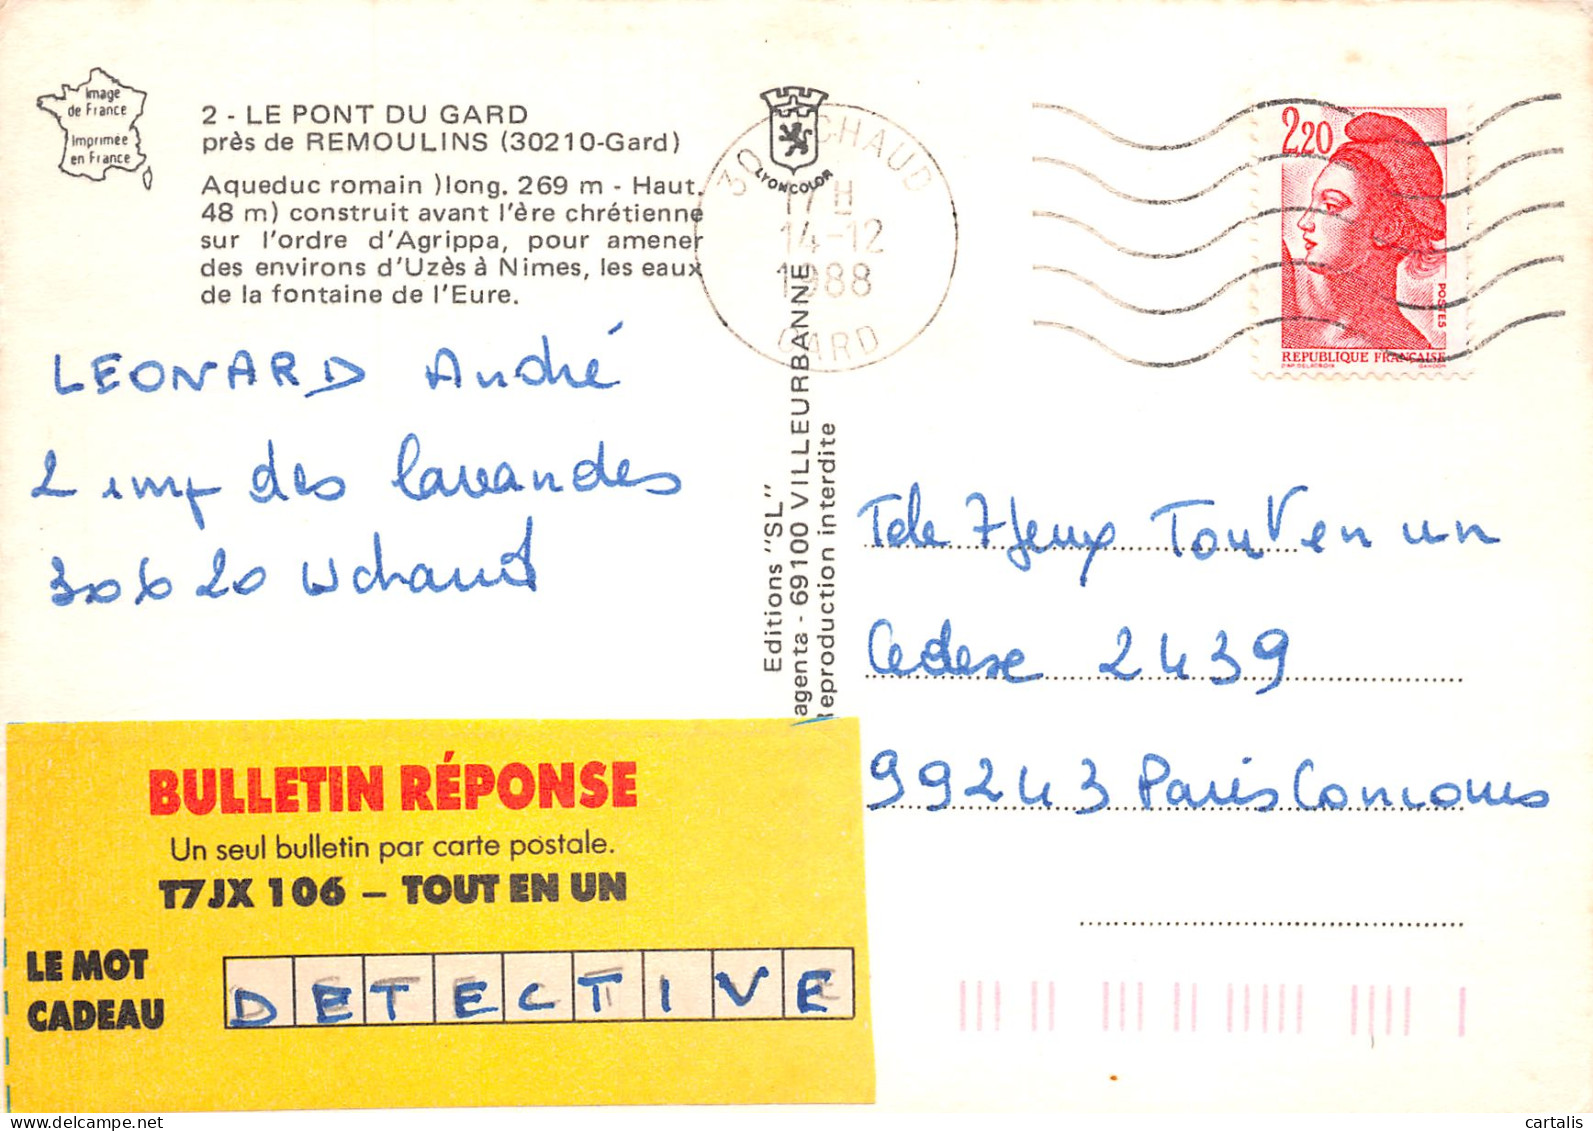 Image
de France
Imprimée
en France
2 - LE PONT DU GARD
près de REMOULINS (30210-Gard)
Aqueduc romain )long. 269 m - Haut.
48 m) construit avant l'ère chrétienne
sur l'ordre d'Agrippa, pour amener
des environs d'Uzès à Nimes, les eaux
de la fontaine de l'Eure.
LYONCOLOR
30 CHAUD
17 H
14-12
1988
GARD
2,20
POSTES
REPUBLIQUE FRANÇAISE
D'AP. DELACROIX GANDON
LEONARD André
2 imp des lavandes
30620 Uchaud
Editions "SL"
agenta - 69100 VILLEURBANNE
Reproduction interdite
Tele 7 Jeux Tout en un
Cedex 2439
99243 Paris Concours
BULLETIN RÉPONSE
Un seul bulletin par carte postale.
T7JX 106 – TOUT EN UN
LE MOT
CADEAU
DETECTIVE
cartalis